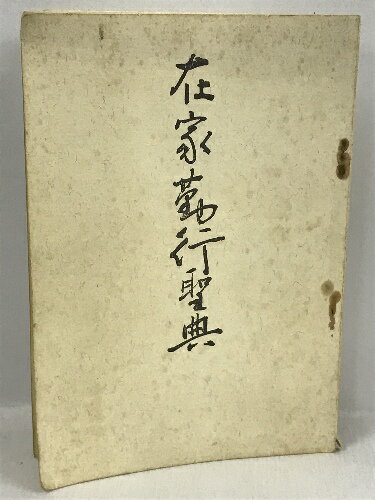 在家勤行聖典